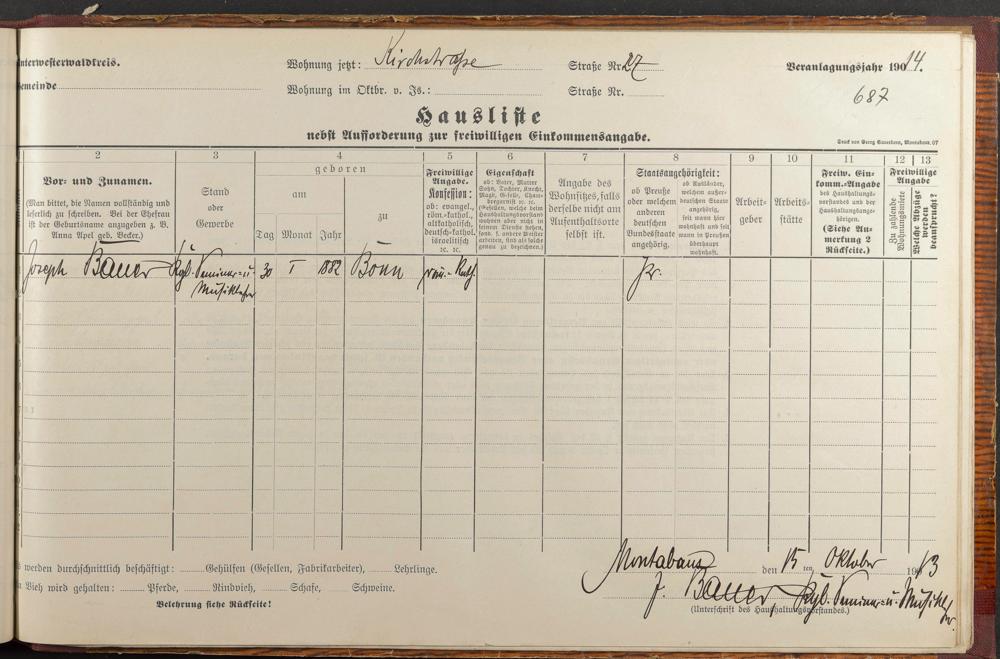 Unterwesterwaldkreis.
Wohnung jetzt: Kirchstraße Straße Nr. 27
Veranlagungsjahr 1914.
Gemeinde
Wohnung im Oktbr. v. Js.: Straße Nr.
687
Hausliste
nebst Aufforderung zur freiwilligen Einkommensangabe.
Druck von Georg Sauerborn, Montabaur. 07
2 3 4 5 6 7 8 9 10 11 12 13
Vor- und Zunamen.
(Man bittet, die Namen vollständig und
leserlich zu schreiben. Bei der Ehefrau
ist der Geburtsname anzugeben z. B.
Anna Apel geb. Becker.)
Stand
oder
Gewerbe
geboren
am
Tag Monat Jahr
zu
Freiwillige
Angabe.
Konfession:
ob: evangel.,
röm.-kathol.,
altkatholisch,
deutsch-kathol.
israelitisch
ꝛc. ꝛc.
Eigenschaft
ob: Vater, Mutter
Sohn, Tochter, Knecht,
Magd, Geselle, Cham-
bregarnist ꝛc. ꝛc.
(Gesellen, welche beim
Haushaltungsvorstand
wohnen aber nicht in
seinem Dienste stehen,
sond. f. andere Meister
arbeiten, sind als solche
genau zu bezeichnen.)
Angabe des
Wohnsitzes, falls
derselbe nicht am
Aufenthaltsorte
selbst ist.
Staatsangehörigkeit:
ob Preuße
oder welchem
anderen
deutschen
Bundesstaate
angehörig.
ob Ausländer,
welchem außer-
deutschen Staate
angehörig,
seit wann hier
wohnhaft und seit
wann in Preußen
überhaupt
wohnhaft.
Arbeit-
geber
Arbeits-
stätte
Freiw. Ein-
komm.-Angabe
des Haushaltungs-
vorstandes und der
Haushaltungsange-
hörigen.
(Siehe An-
merkung 2
Rückseite.)
Freiwillige
Angabe
Zu zahlende
Wohnungsmiete
Welche Abzüge
werden
beansprucht?
Joseph Bauer Kgl. Seminar- u. 30 I 1882 Bonn röm.-kath. Pr.
Musiklehrer
werden durchschnittlich beschäftigt: Gehülfen (Gesellen, Fabrikarbeiter), Lehrlinge.
Vieh wird gehalten: Pferde, Rindvieh, Schafe, Schweine.
Belehrung siehe Rückseite!
Montabaur den 15ten Oktober 1913
J. Bauer Kgl. Seminar- u. Musiklehr.
(Unterschrift des Haushaltungsvorstandes.)